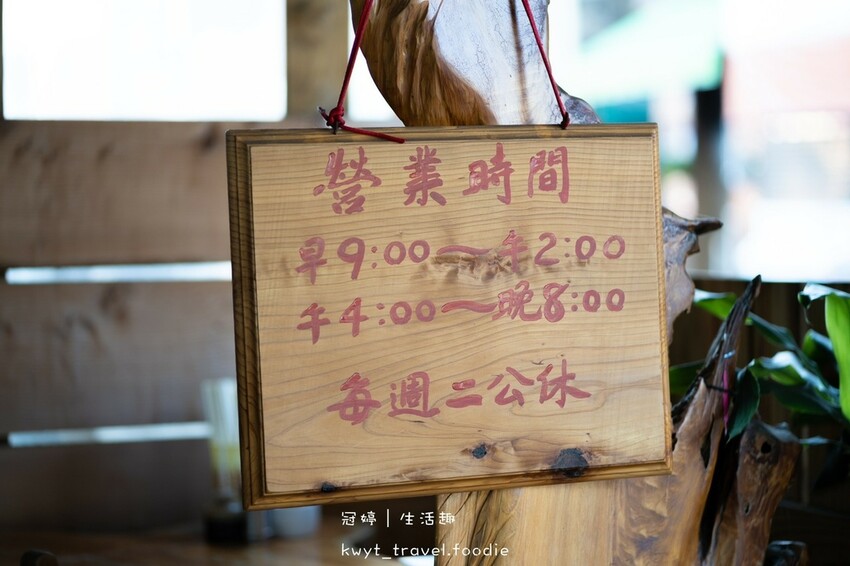 營業時間
早9:00～午2:00
午4:00～晚8:00
每週二公休
冠婷｜生活趣
kwyt_travel.foodie